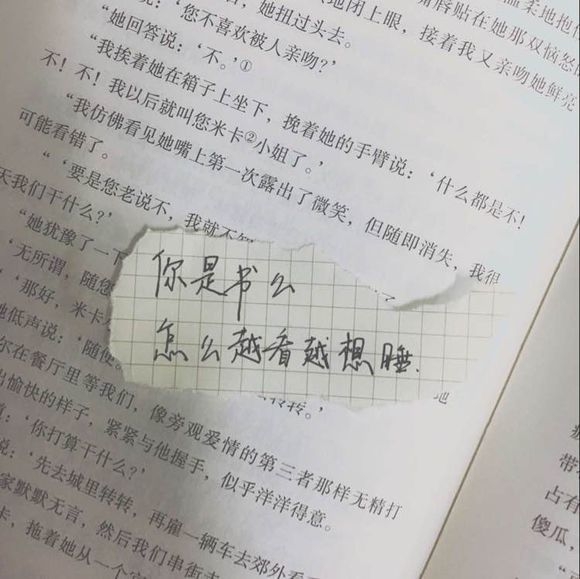 地闭上眼，接着我又亲吻她鲜亮
唇贴在她那双恼怒
温柔地抱
，她扭过头去。
“她回答说：‘不。’①
说：‘您不喜欢被人亲吻？’
“我挨着她在箱子上坐下，挽着她的手臂说：‘什么都是不！
不！不！我以后就叫您米卡②小姐了。’
“我仿佛看见她嘴上第一次露出了微笑，但随即消失，我很
可能看错了。
“‘要是您老说不，我就不知
天我们干什么？’
“她犹豫了一下
‘无所谓，随您
‘那好，米卡
她低声说：‘随便
你是书么
怎么越看越想睡.
转转。’
尔在餐厅里等我们，像旁观爱情的第三者那样无精打
出愉快的样子，紧紧与他握手，似乎洋洋得意。
：‘你打算干什么？’
说：‘先去城里转转，再雇一辆车去郊外看
家默默无言，然后我们串街走
卡，拖着她从一个
带
占有
傻瓜，